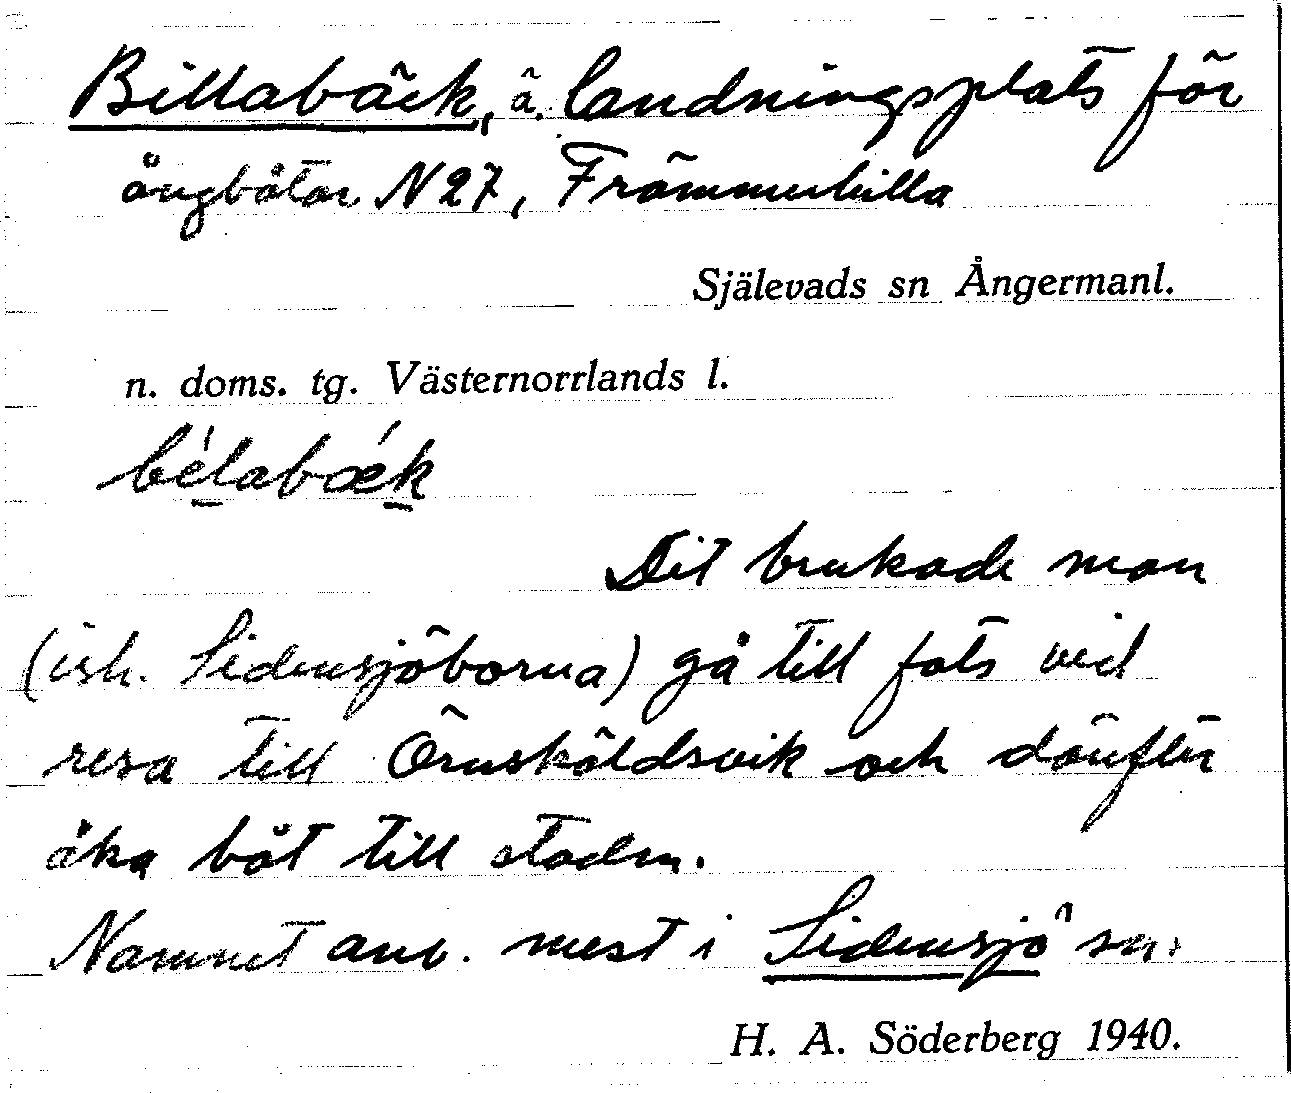 Billabäck, ä. landningsplats för
ångbåtar N 27, Främmerbilla
Själevads sn Ångermanl.
n. doms. tg. Västernorrlands l.
bélabǽk
Dit brukade man
(ish. Sidensjöborna) gå till fots vid
resa till Örnsköldsvik och därifrån
åka båt till staden.
Namnet anv. mest i Sidensjö sn.
H. A. Söderberg 1940.